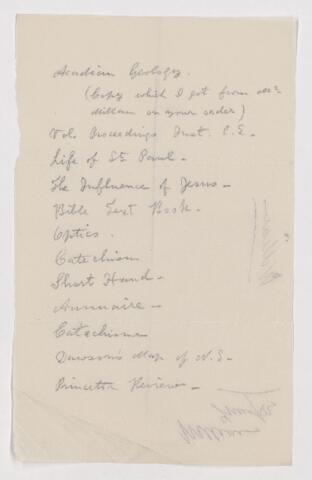 Acadian Geology.
(Copy which I got from Mc
Millan on your order)
Vol. Proceedings Inst. C.E.
Life of St Paul.
The Influence of Jesus
Bible Text Book.
Optics.
Catechism
Short Hand
Annuaire
Catechisme
Dawson's Map of N.S.
Princeton Review